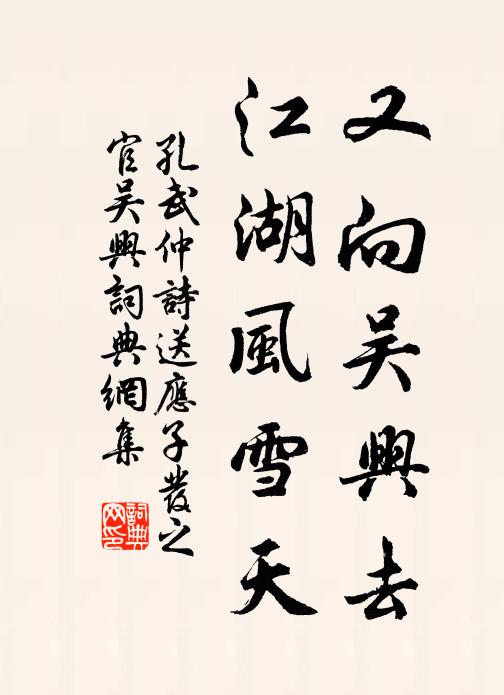 又向吳興去
江湖風雪天
孔武仲詩送應子發之
官吳興詞典網集
詞典
网印